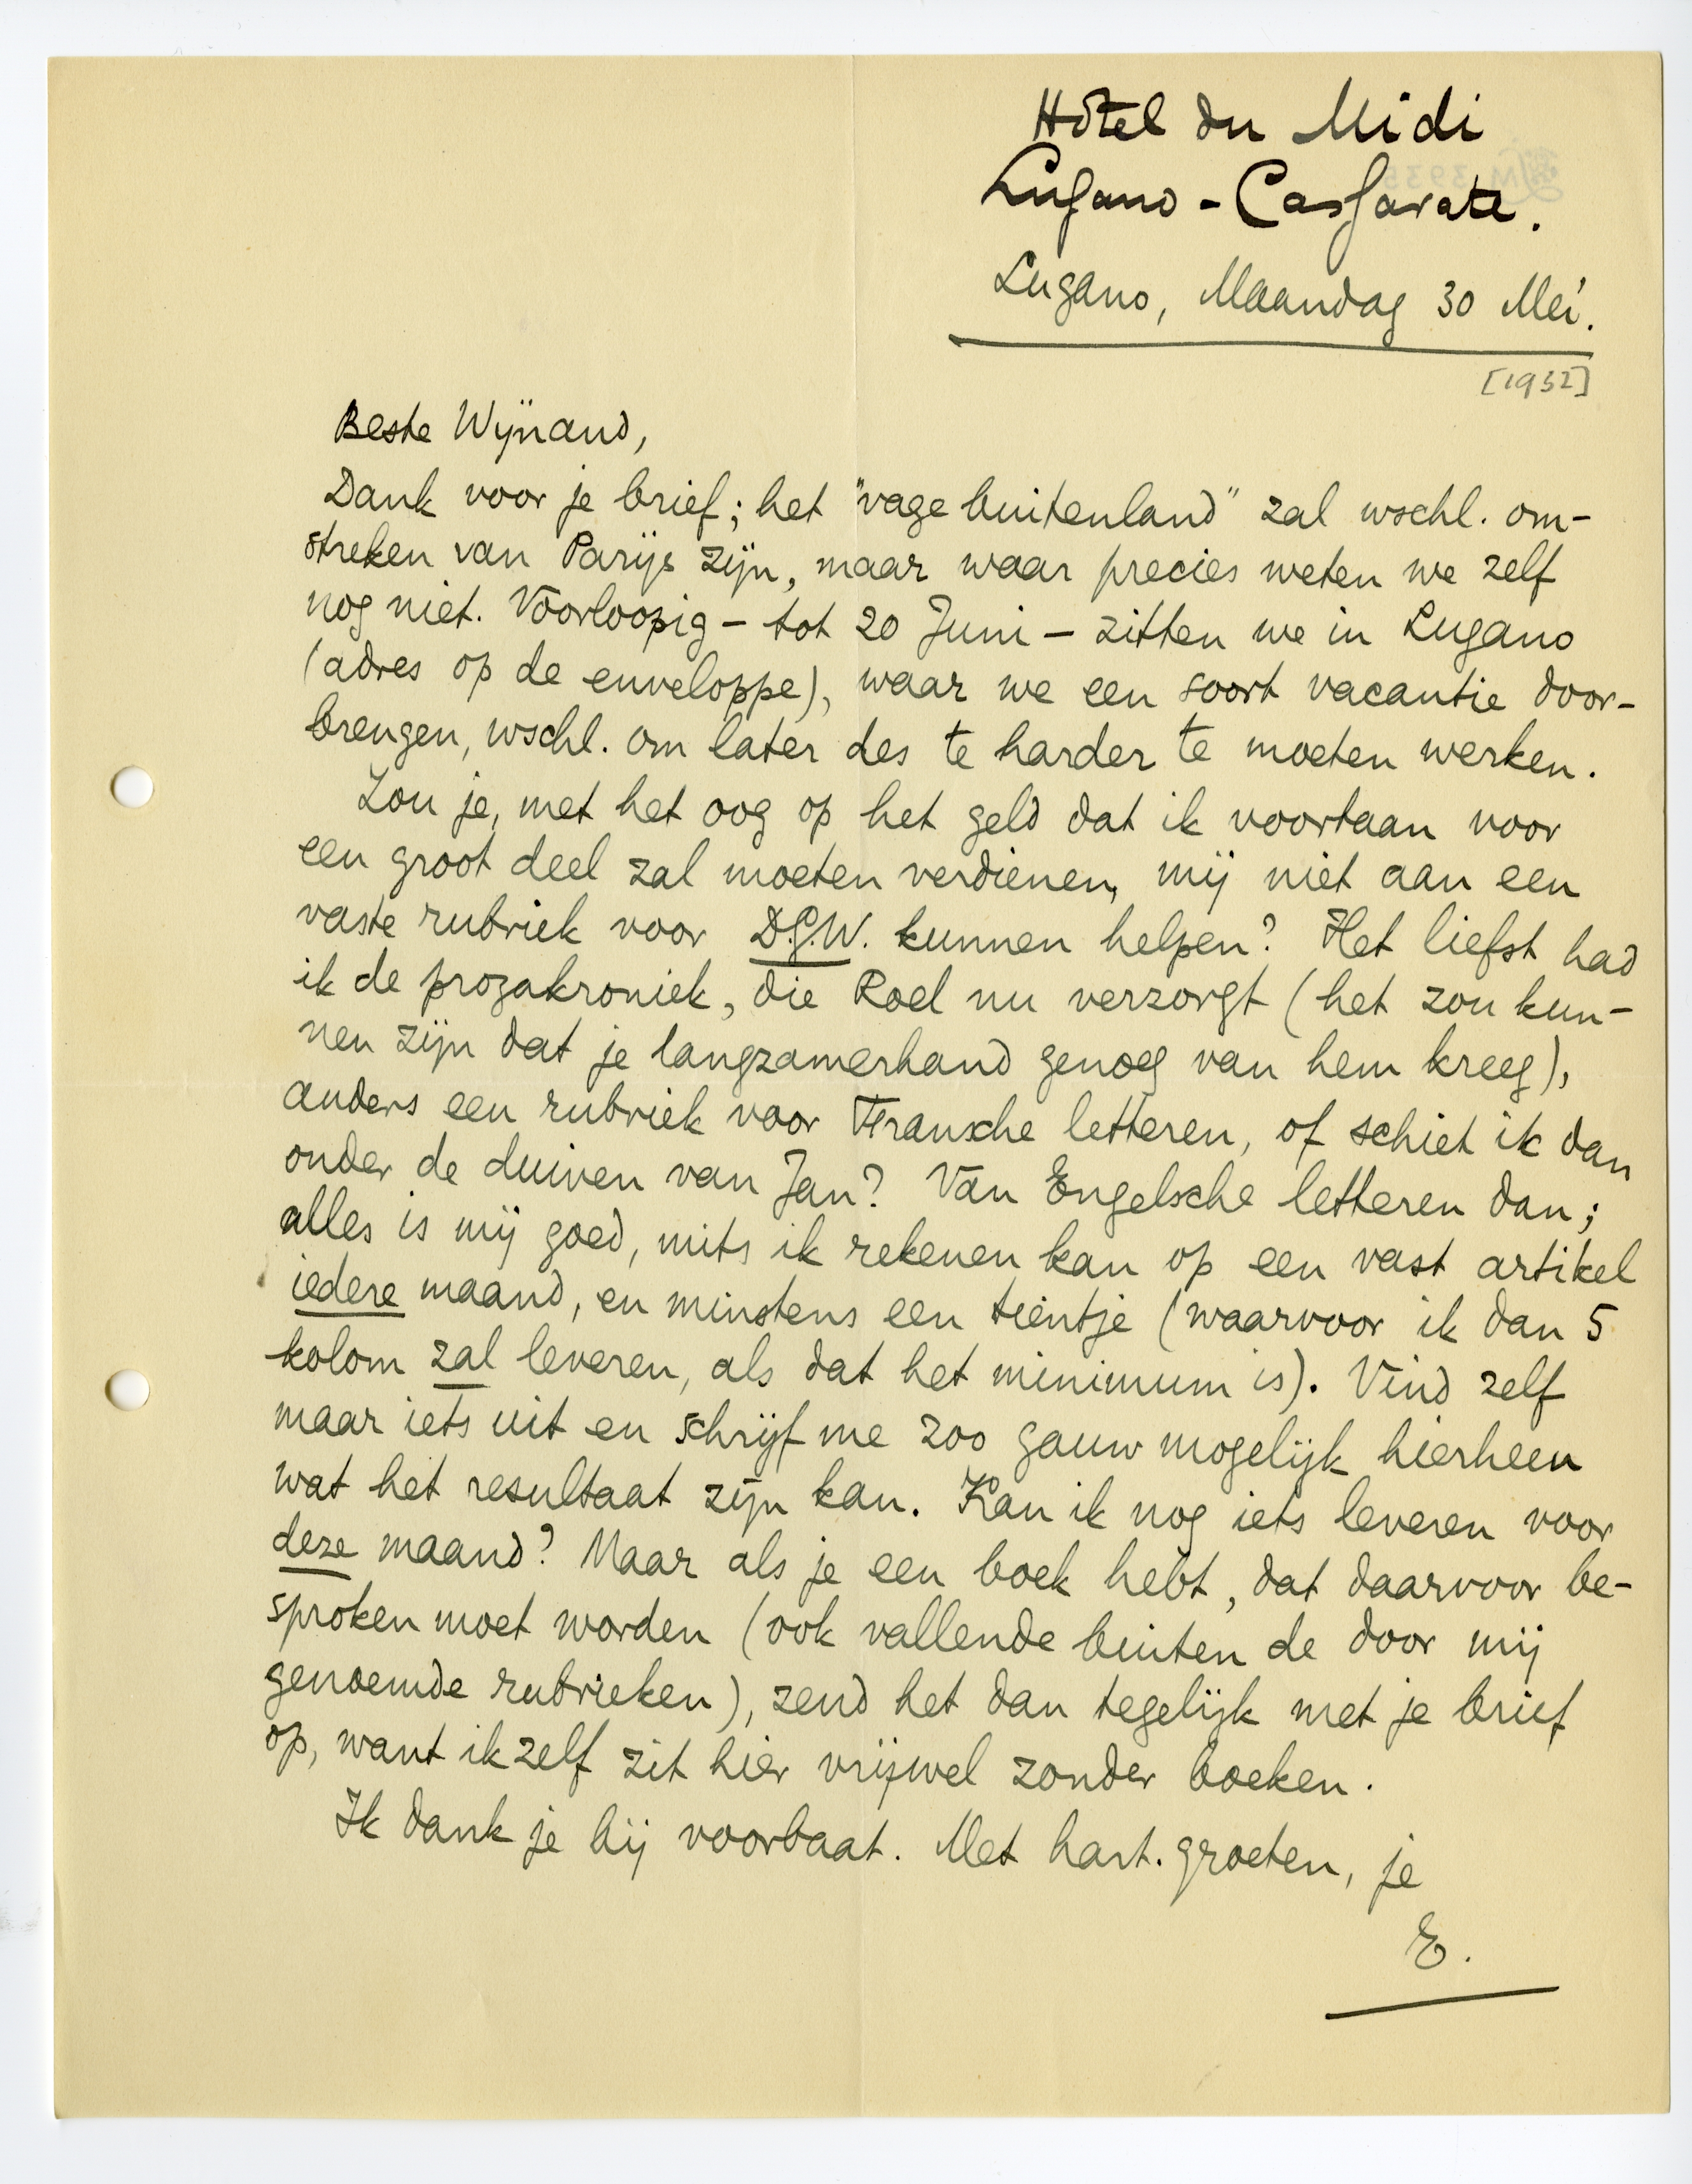 Hôtel du Midi
Lugano - Cassarate.
Lugano, Maandag 30 Mei.
[1932]
Beste Wijnand,
Dank voor je brief; het "vage buitenland" zal wschl. om-
streken van Parijs zijn, maar waar precies weten we zelf
nog niet. Voorloopig - tot 20 Juni - zitten we in Lugano
(adres op de enveloppe), waar we een soort vacantie door-
brengen, wschl. om later des te harder te moeten werken.
Zou je, met het oog op het geld dat ik voortaan voor
een groot deel zal moeten verdienen, mij niet aan een
vaste rubriek voor D.G.W. kunnen helpen? Het liefst had
ik de prozakroniek, die Roel nu verzorgt (het zou kun-
nen zijn dat je langzamerhand genoeg van hem kreeg),
anders een rubriek voor Fransche letteren, of schiet ik dan
onder de duiven van Jan? Van Engelsche letteren dan;
alles is mij goed, mits ik rekenen kan op een vast artikel
iedere maand, en minstens een tientje (waarvoor ik dan 5
kolom zal leveren, als dat het minimum is). Vind zelf
maar iets uit en schrijf me zoo gauw mogelijk hierheen
wat het resultaat zijn kan. Kan ik nog iets leveren voor
deze maand? Maar als je een boek hebt, dat daarvoor be-
sproken moet worden (ook vallende buiten de door mij
genoemde rubrieken), zend het dan tegelijk met je brief
op, want ik zelf zit hier vrijwel zonder boeken.
Ik dank je bij voorbaat. Met hart. groeten, je
E.